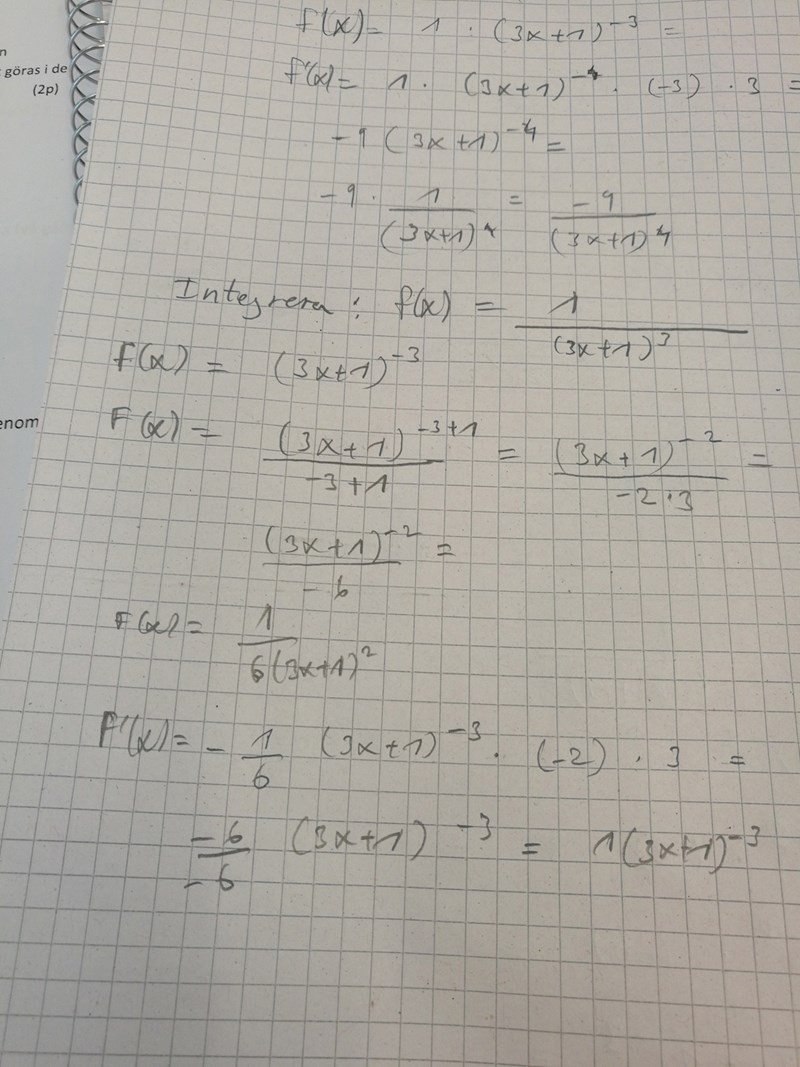 n
göras i de
(2p)
enom
f(x) = 1 · (3x+1)^-3 =
f'(x) = 1 · (3x+1)^-4 · (-3) · 3 =
-9 (3x+1)^-4 =
-9 · 1/(3x+1)^4 = -9/(3x+1)^4
Integrera : f(x) = 1/(3x+1)^3
f(x) = (3x+1)^-3
F(x) = (3x+1)^-3+1/-3+1 = (3x+1)^-2/-2·3 =
(3x+1)^-2/-6 =
F(x) = 1/6(3x+1)^2
F'(x) = - 1/6 (3x+1)^-3 · (-2) · 3 =
-6/-6 (3x+1)^-3 = 1(3x+1)^-3